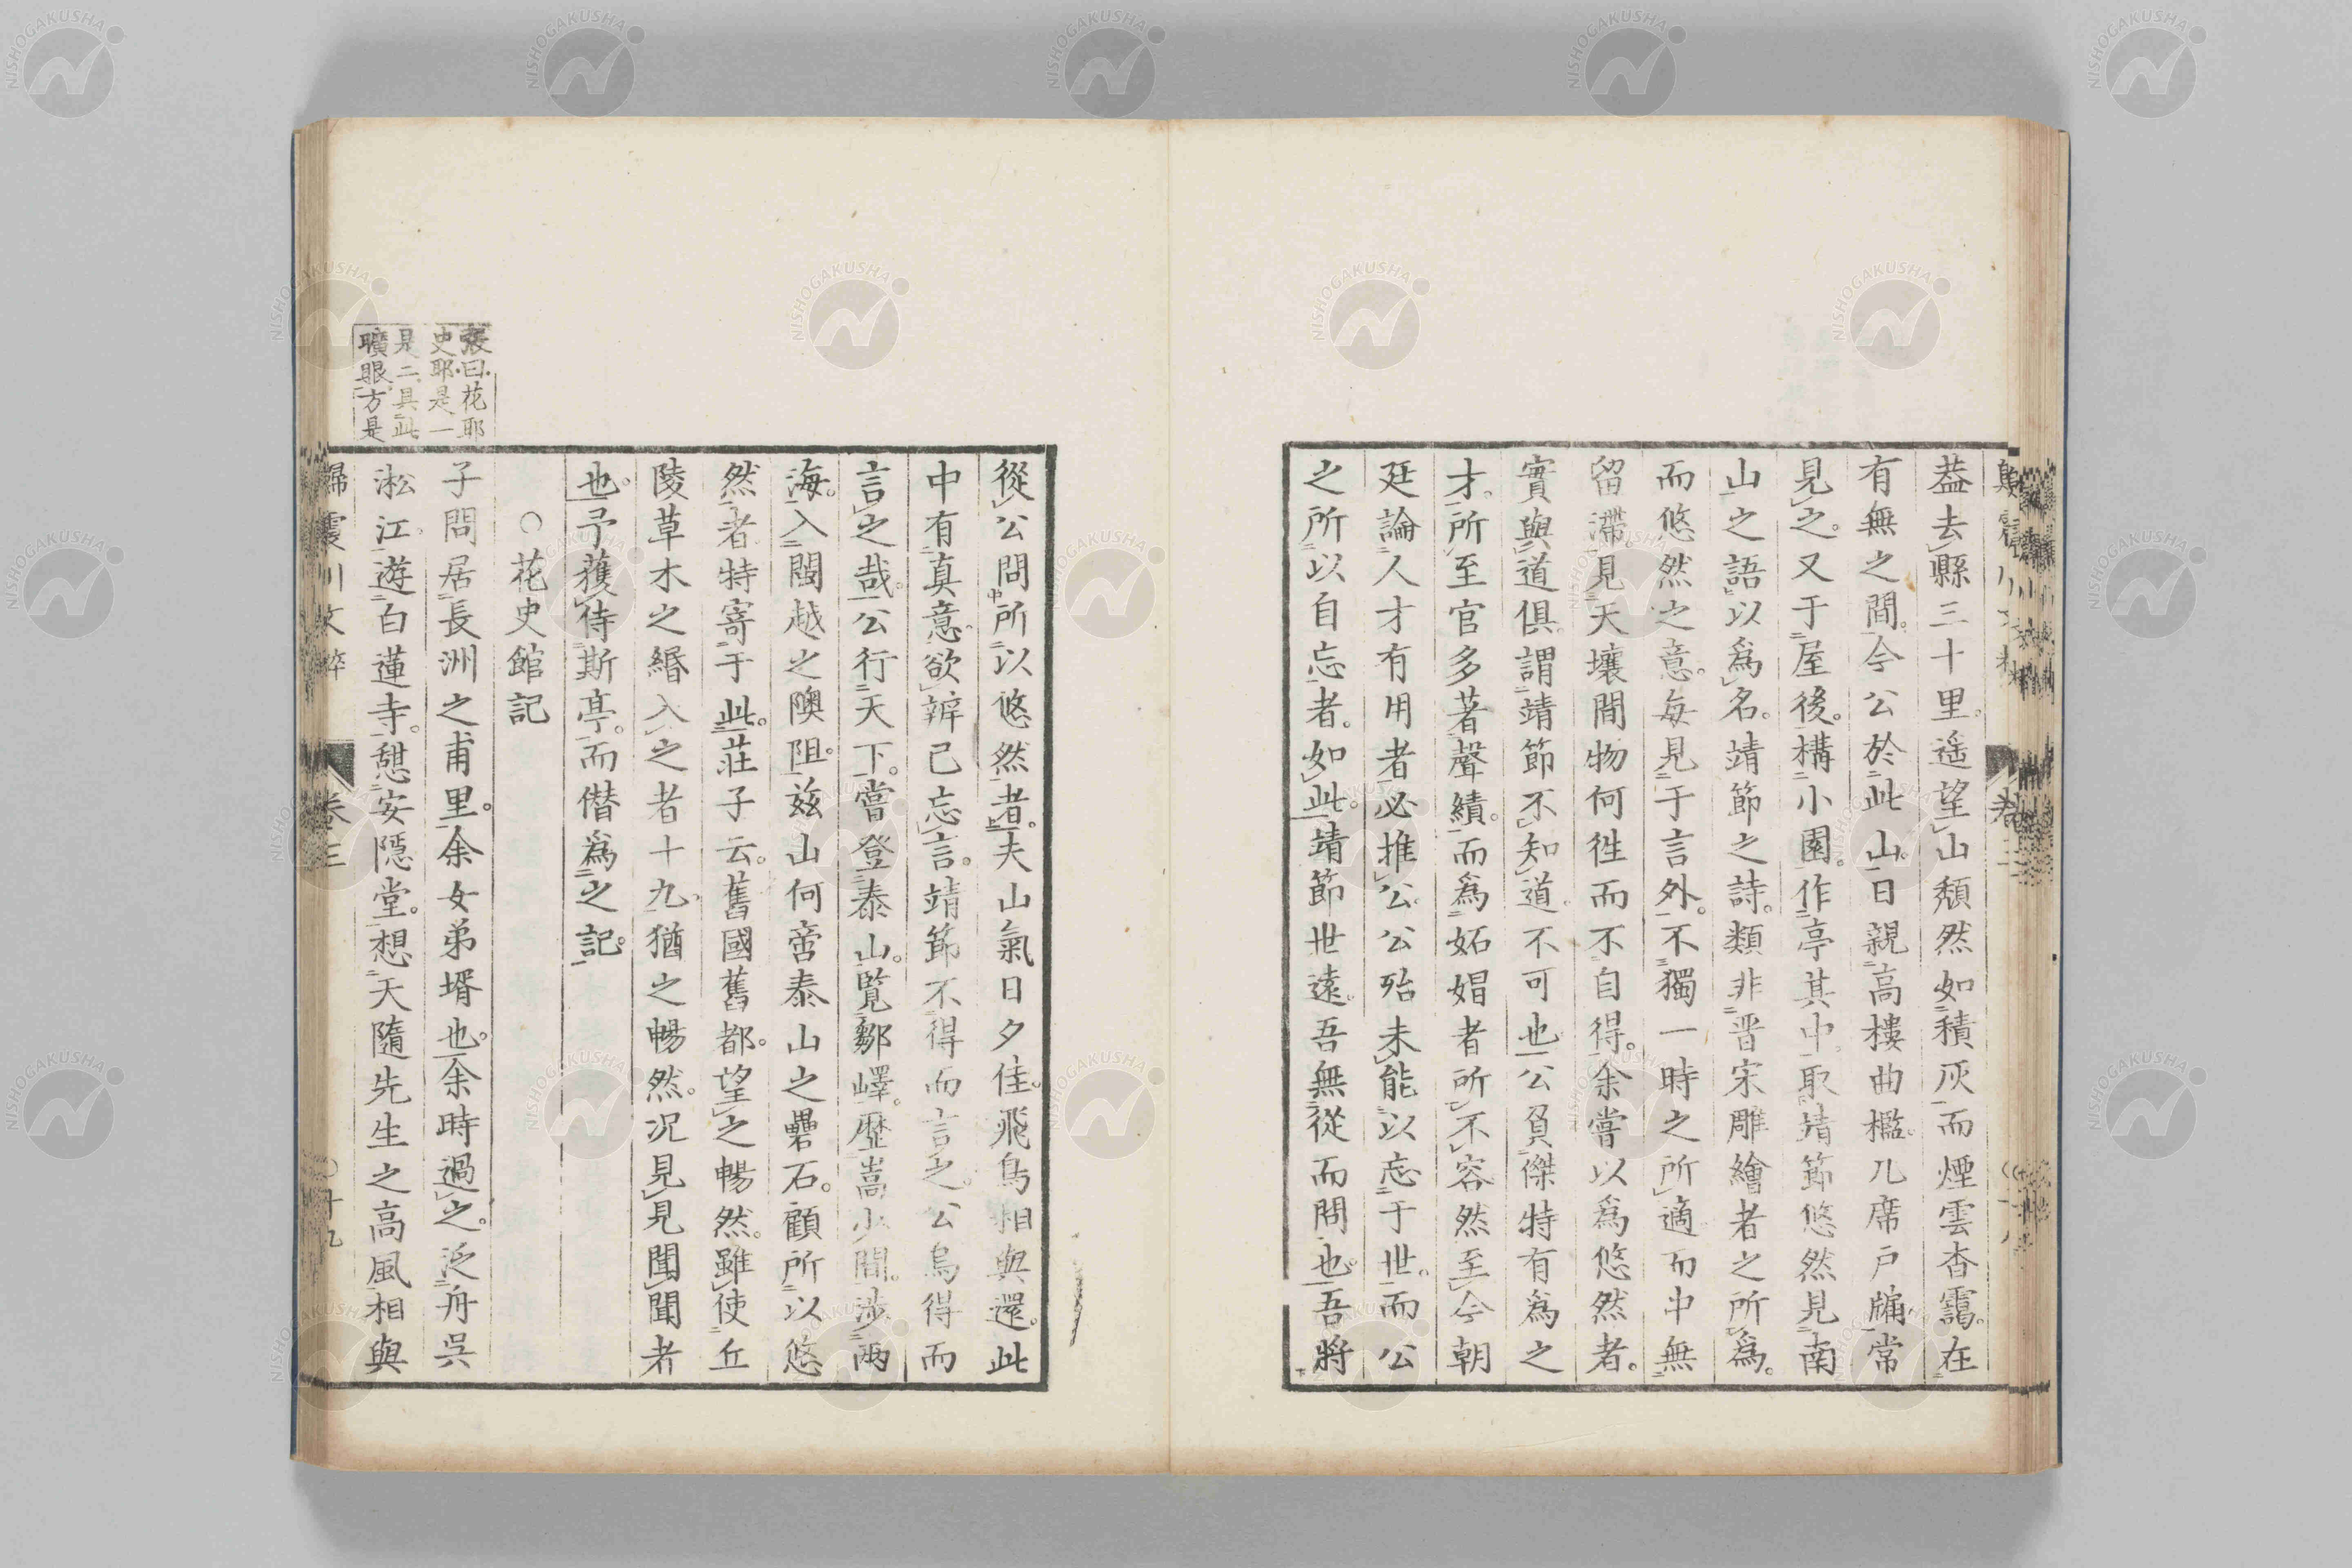 蓋去縣三十里。遥望山頹然如積灰而煙雲杳靄。在
有無之間。今公於此山。日親高樓曲檻。几席戶牖常
見之。又于屋後。構小園。作亭其中。取靖節悠然見南
山之語以爲名。靖節之詩。類非晋宋雕繪者之所爲。
而悠然之意。每見于言外。不獨一時之所適而中無
留滯。見天壤間物何徃而不自得。余嘗以爲悠然者。
實與道俱。謂靖節不知道。不可也。公負傑特有爲之
才。所至官多著聲績。而爲妬媢者所不容然至今朝
廷論人才有用者必推公。公殆未能以忘于世。而公
之所以自忘者。如此。靖節世遠。吾無從而問也。吾將
從公問所以悠然者。夫山氣日夕佳。飛鳥相與還。此
中有真意。欲辨已忘言。靖節不得而言之。公烏得而
言之哉。公行天下。嘗登泰山。覽鄒嶧。歷嵩少間。涉兩
海。入閩越之隩阻。茲山何啻泰山之礨石。顧所以悠
然者特寄于此。莊子云。舊國舊都。望之暢然。雖使丘
陵草木之緡入之者十九。猶之暢然。况見見聞聞者
也。予獲侍斯亭。而僭爲之記。
○花史館記
子問居長洲之甫里。余女弟壻也。余時過之。泛舟吳
淞江。遊白蓮寺。憩安隱堂。想天隨先生之高風相與
張曰花耶
史耶是一
是二具此
曠眼方是
歸震川文粹 卷三 十九
NISHOGAKUSHA